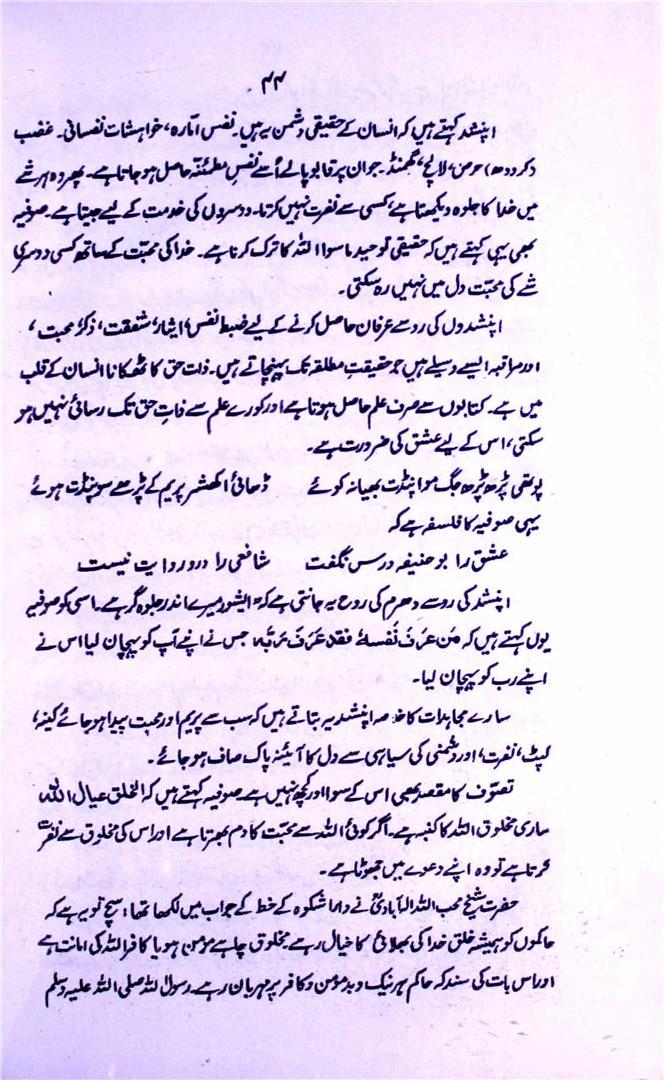 ۴۴
اپنشد کہتے ہیں کہ انسان کے حقیقی دشمن یہ ہیں۔ نفس امّارہ، خواہشات نفسانی۔ غضب
(کرودھ) حرص، لالچ، گھمنڈ۔ جو ان پر قابو پالے اُسے نفسِ مطمئنہ حاصل ہو جاتا ہے۔ پھر وہ ہر شے
میں خدا کا جلوہ دیکھتا ہے، کسی سے نفرت نہیں کرتا۔ دوسروں کی خدمت کے لیے جیتا ہے۔ صوفیہ
بھی یہی کہتے ہیں کہ حقیقی توحید ماسوا اللہ کا ترک کرنا ہے۔ خدا کی محبّت کے ساتھ کسی دوسری
شے کی محبّت دل میں نہیں رہ سکتی۔
اپنشدوں کی رو سے عرفان حاصل کرنے کے لیے ضبط نفس، ایثار، شفقت، ذکر، محبت،
اور مراقبہ ایسے وسیلے ہیں جو حقیقتِ مطلقہ تک پہنچاتے ہیں۔ ذات حق کا ٹھکانا انسان کے قلب
میں ہے۔ کتابوں سے صرف علم حاصل ہوتا ہے اور کورے علم سے ذاتِ حق تک رسائی نہیں ہو
سکتی، اس کے لیے عشق کی ضرورت ہے۔
پوتھی پڑھ پڑھ جگ موا پنڈت بھیا نہ کوئے ڈھائی اکھشر پریم کے پڑھے سو پنڈت ہوئے
یہی صوفیہ کا فلسفہ ہے کہ
عشق را بو حنیفہ درس نگفت شافعی را درو روایت نیست
اپنشد کی رو سے دھرم کی روح یہ جانتی ہے کہ "ایشور میرے اندر جلوہ گر ہے۔ اسی کو صوفیہ
یوں کہتے ہیں کہ مَن عَرَفَ نَفسَہٗ فَقَد عَرَفَ رَبَّہ جس نے اپنے آپ کو پہچان لیا اس نے
اپنے رب کو پہچان لیا۔
سارے مجاہدات کا خلاصہ اپنشد یہ بتاتے ہیں کہ سب سے پریم اور محبت پیدا ہو جائے کینہ،
کپٹ، نفرت، اور دشمنی کی سیاہی سے دل کا آئینہ پاک صاف ہو جائے۔
تصوّف کا مقصد بھی اس کے سوا اور کچھ نہیں ہے۔ صوفیہ کہتے ہیں کہ الخلق عیال اللہ
ساری مخلوق اللہ کا کنبہ ہے۔ اگر کوئی اللہ سے محبّت کا دم بھرتا ہے اور اس کی مخلوق سے نفرت
کرتا ہے تو وہ اپنے دعوے میں جھوٹا ہے۔
حضرت شیخ محب اللہ الہ آبادیؒ نے دارا شکوہ کے خط کے جواب میں لکھا تھا: سچ تو یہ ہے کہ
حاکموں کو ہمیشہ خلق خدا کی بھلائی کا خیال رہے مخلوق چاہے مؤمن ہو یا کافر اللہ کی امانت ہے
اور اس بات کی سند کہ حاکم ہر نیک و بد مؤمن و کافر پر مہربان رہے۔ رسول اللہ صلی اللہ علیہ وسلم